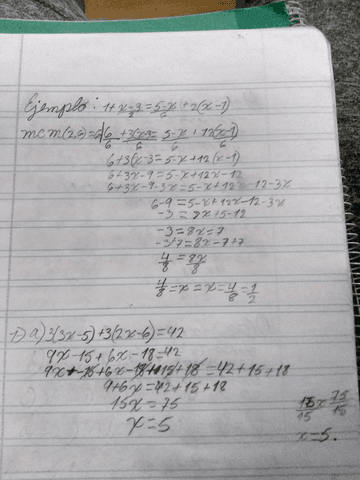 Ejemplo: 1+x-3/2=5-x/6+2(x-1)
mcm(2,6)=6 6/6+3(x-3)/6=5-x/6+12(x-1)/6
6+3(x-3=5-x+12(x-1)
6+3x-9=5-x+12x-12
6+3x-9-3x=5-x+12x-12-3x
6-9=5-x+12x-12-3x
-3=8x+5-12
-3=8x=7
-3+7=8x-7+7
4/8=8x/8
4/8=x=x=4/8=1/2
1) a) 3(3x-5)+3(2x-6)=42
9x-15+6x-18=42
9x-15+6x-18+15+18=42+15+18
9+6x=42+15+18
15x=75
x=5
15x/15 75/15
x=5.